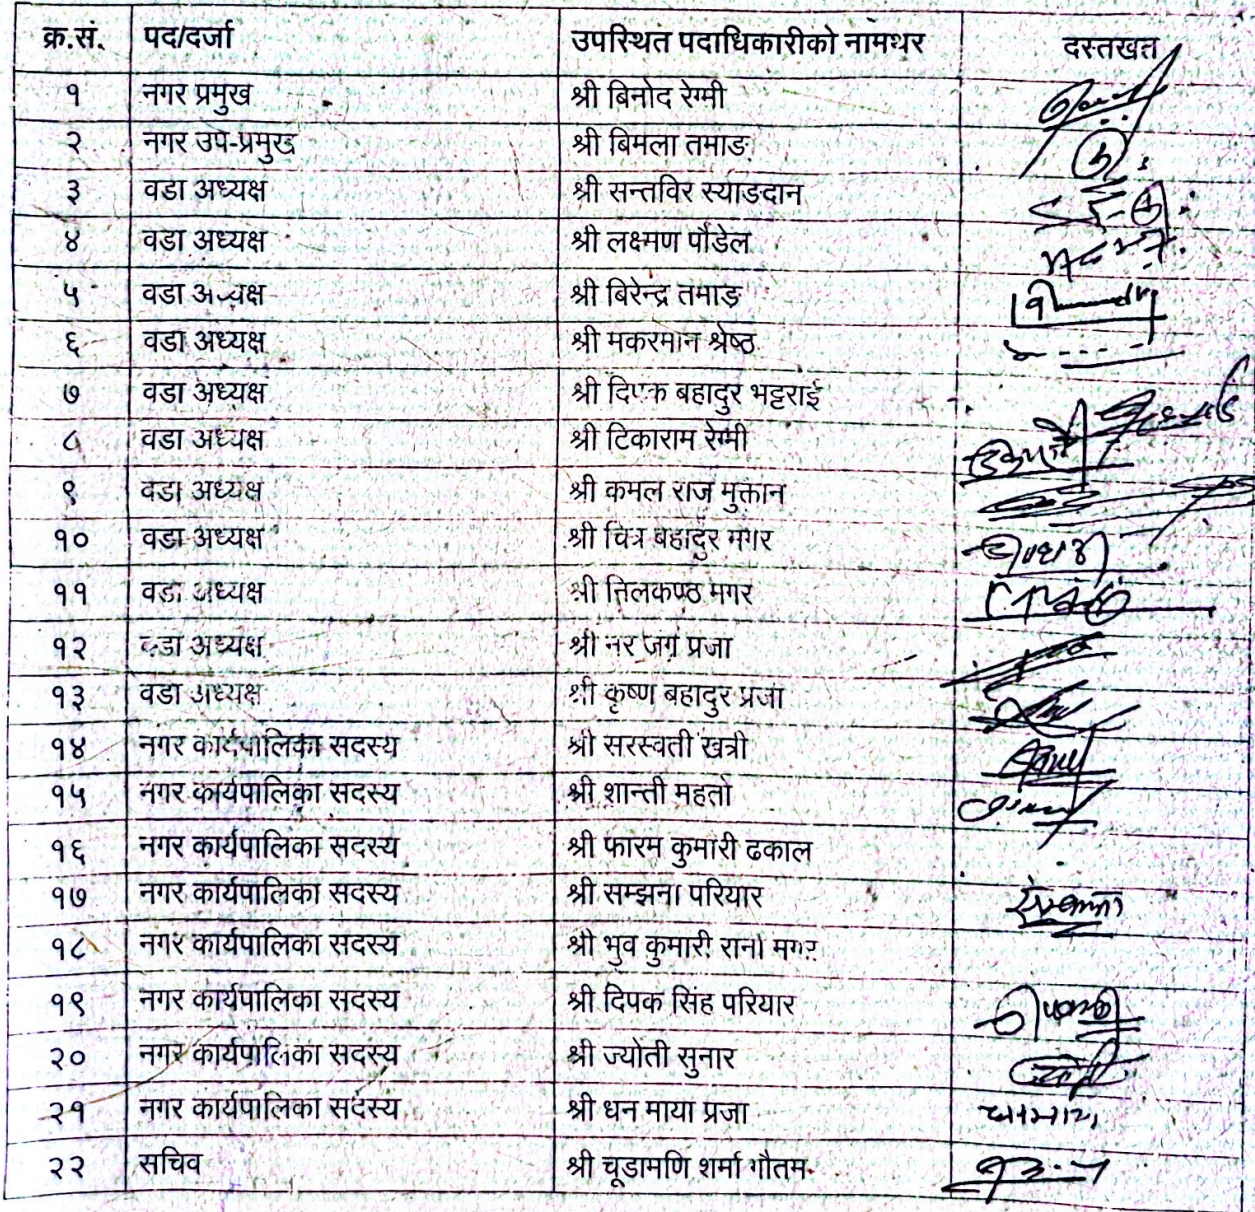 क्र.सं. पद/दर्जा उपस्थित पदाधिकारीको नामथर दस्तखत
१ नगर प्रमुख श्री बिनोद रेग्मी
२ नगर उप-प्रमुख श्री बिमला तमाङ
३ वडा अध्यक्ष श्री सन्तविर स्याङदान
४ वडा अध्यक्ष श्री लक्ष्मण पौडेल
५ वडा अध्यक्ष श्री बिरेन्द्र तमाङ
६ वडा अध्यक्ष श्री मकरमान श्रेष्ठ
७ वडा अध्यक्ष श्री दिपक बहादुर भट्टराई
८ वडा अध्यक्ष श्री टिकाराम रेग्मी
९ वडा अध्यक्ष श्री कमल राज मुक्तान
१० वडा अध्यक्ष श्री चित्र बहादुर मगर
११ वडा अध्यक्ष श्री निलकण्ठ मगर
१२ वडा अध्यक्ष श्री नर जग प्रजा
१३ वडा अध्यक्ष श्री कृष्ण बहादुर प्रजा
१४ नगर कार्यपालिका सदस्य श्री सरस्वती खत्री
१५ नगर कार्यपालिका सदस्य श्री शान्ती महतो
१६ नगर कार्यपालिका सदस्य श्री फारम कुमारी ढकाल
१७ नगर कार्यपालिका सदस्य श्री सम्झना परियार
१८ नगर कार्यपालिका सदस्य श्री भुव कुमारी राना मगर
१९ नगर कार्यपालिका सदस्य श्री दिपक सिंह परियार
२० नगर कार्यपालिका सदस्य श्री ज्योती सुनार
२१ नगर कार्यपालिका सदस्य श्री धन माया प्रजा
२२ सचिव श्री चूडामणि शर्मा गौतम